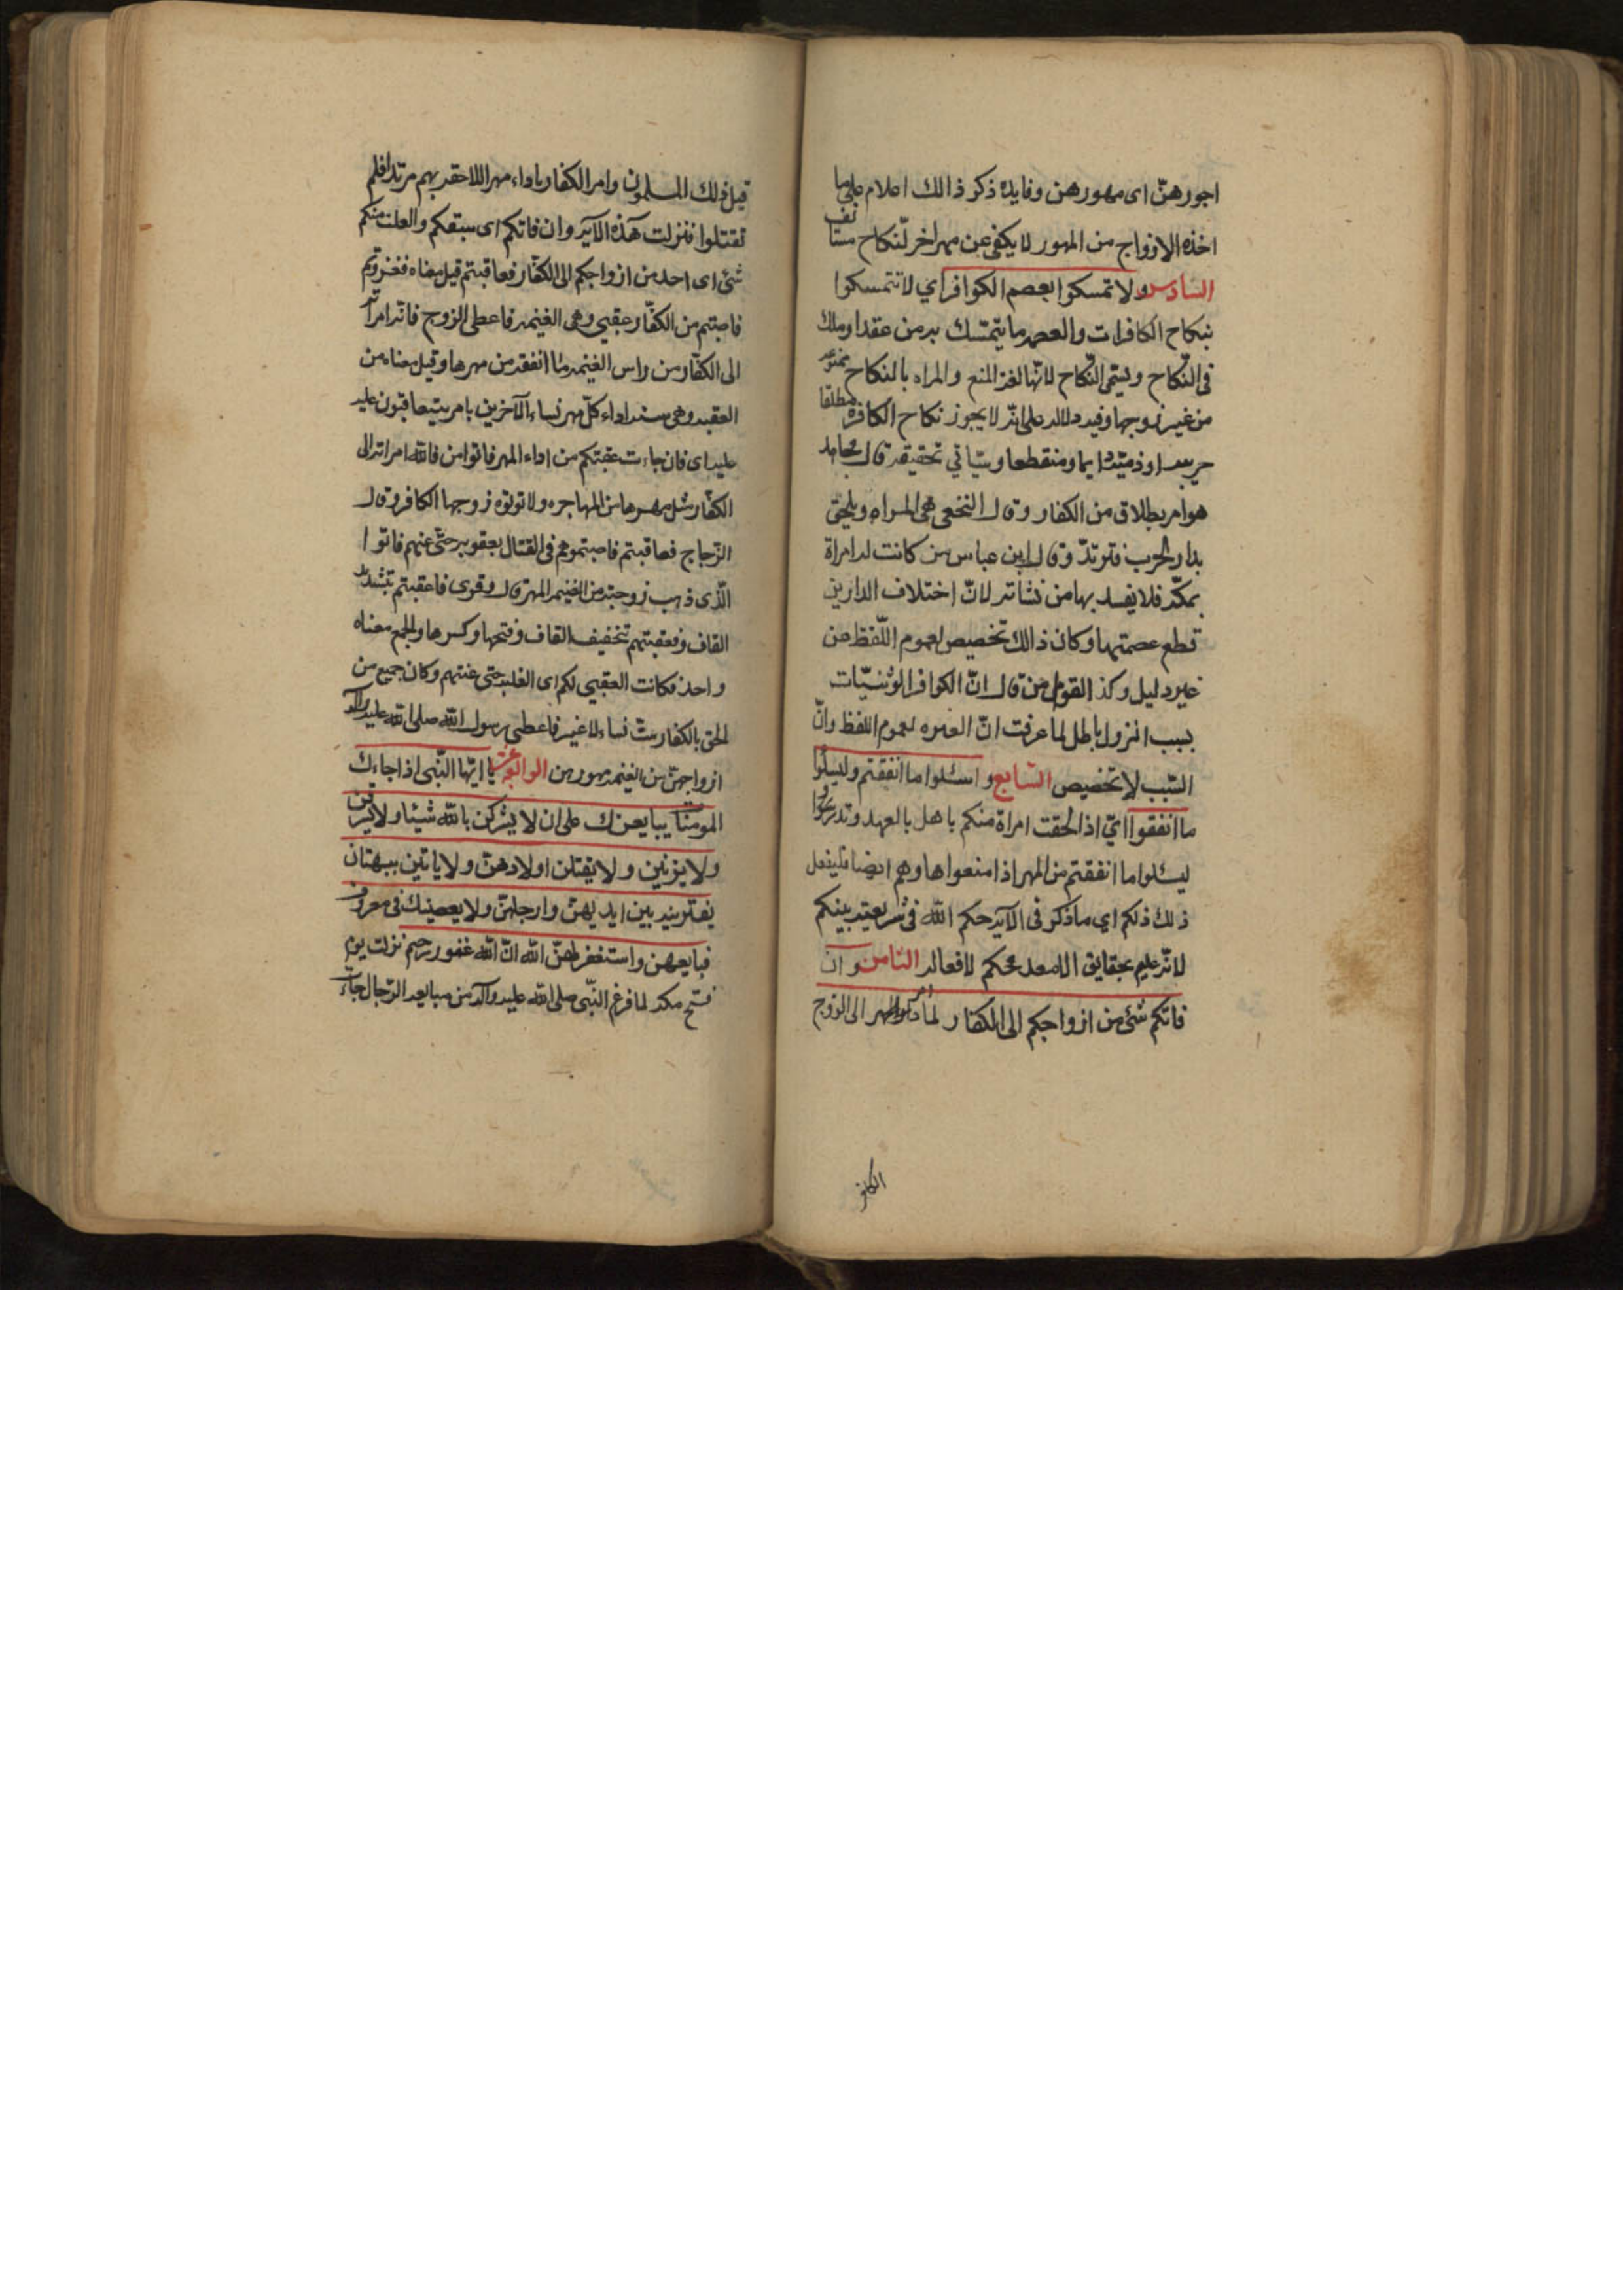 اجورهنّ اى مهورهن وفايده ذكر ذالك اعلام على ما
اخذه الازواج من المهور لا يكفى عن مهر اخر لنكاح مستانف
السادس ولا تمسكوا بعصم الكوافر اي لا تتمسكوا
بنكاح الكافرات والعصمه ما يتمتسك به من عقد او ملك
فى النّكاح ويسمّى النّكاح لانّها لغة المنع والمراه بالنكاح ممنوعه
من غير زوجها وفيه دلاله على انّه لا يجوز نكاح الكافره مطلقا
حربيه او ذميّه دايما ومنقطعا وسياتي تحقيقه قال مجاهد
هو امر بطلاق من الكفار وقال النخعى هى المراه ويلحق
بدار الحرب فترتدّ وقال ابن عباس من كانت له امراة
بمكّه فلا يعتد بها من نسائه لانّ اختلاف الدارين
قطع عصمتها وكان ذالك تخصيص لعموم اللّفظ من
غير دليل وكذ القول من قال انّ الكوافر الوثنيّات
بسبب النزول باطل لما عرفت انّ العبره لعموم اللفظ وانّ
السّبب لا تخصيص السّابع واسئلوا ما انفقتم وليسئلوا
ما انفقوا اى اذا لحقت امراة منكم باهل بالعهد وتد
ليسئلوا ما انفقتم من المهر اذا منعواها وهم ايضا فليفعل
ذلك ذلكم اي ما ذكر فى الآيه حكم الله فى شريعته بينكم
لانّه عليم بحقايق محكم لافعاله الثامن وان
فاتكم شئ من ازواجكم الى الكفار لما المهر الى الزوج
الكافر
قبل ذلك المسلمون وامر الكفار باداء مهر اللاحقه بهم مرتدا فلم
تقتلوا فنزلت هذه الآيه وان فاتكم اى سبقكم وانفلت منكم
شئ اى احد من ازواجكم الى الكفّار فعاقبتم قيل معناه فغزوتم
فاصبتم من الكفّار عقبى وهى الغنيمه فاعطى الزوج فاته امراته
الى الكفّار من راس الغنيمه ما انفقه من مهرها وقيل معناه من
العقبه وهى اداء كلّ مهر نساء الآخرين بامر يتعاقبون عليه
عليه اى فان جاءت عقبتكم من اداء المهر فاتوا من فاته امراته الى
الكفّار مثل مهرها من المهاجره ولا توتوه زوجها الكافر وقال
الزّجاج فعاقبتم فاصبتموهم فى القتال بعقوبه حتّى غنمتم فاتوا
الّذى ذهب زوجته من الغنيمه المهر قال وقرى فاعقبتم بتشديد
القاف وفعقبتهم بتخفيف القاف وفتحها وكسرها والجمع معناه
واحد فكانت العقبى لكم اى الغلبه حتى غنمتم وكان جميع من
لحق بالكفار ستّ نساء لا غير فاعطى رسول الله صلى الله عليه وآله
ازواجهنّ من الغنيمه مهورهن الرابع عشر يا ايّها النّبى اذا جاءك
المومنات يبايعنك على ان لا يشركن بالله شيئا ولا يسرقن
ولا يزنين ولا يقتلن اولادهنّ ولا ياتين ببهتان
يفترينه بين ايديهنّ وارجلهنّ ولا يعصينك فى معروف
فبايعهن واستغفر لهنّ الله انّ الله غفور رحيم نزلت يوم
فتح مكه لما فرغ النّبى صلى الله عليه وآله من مبايعه الرّجال جاءت